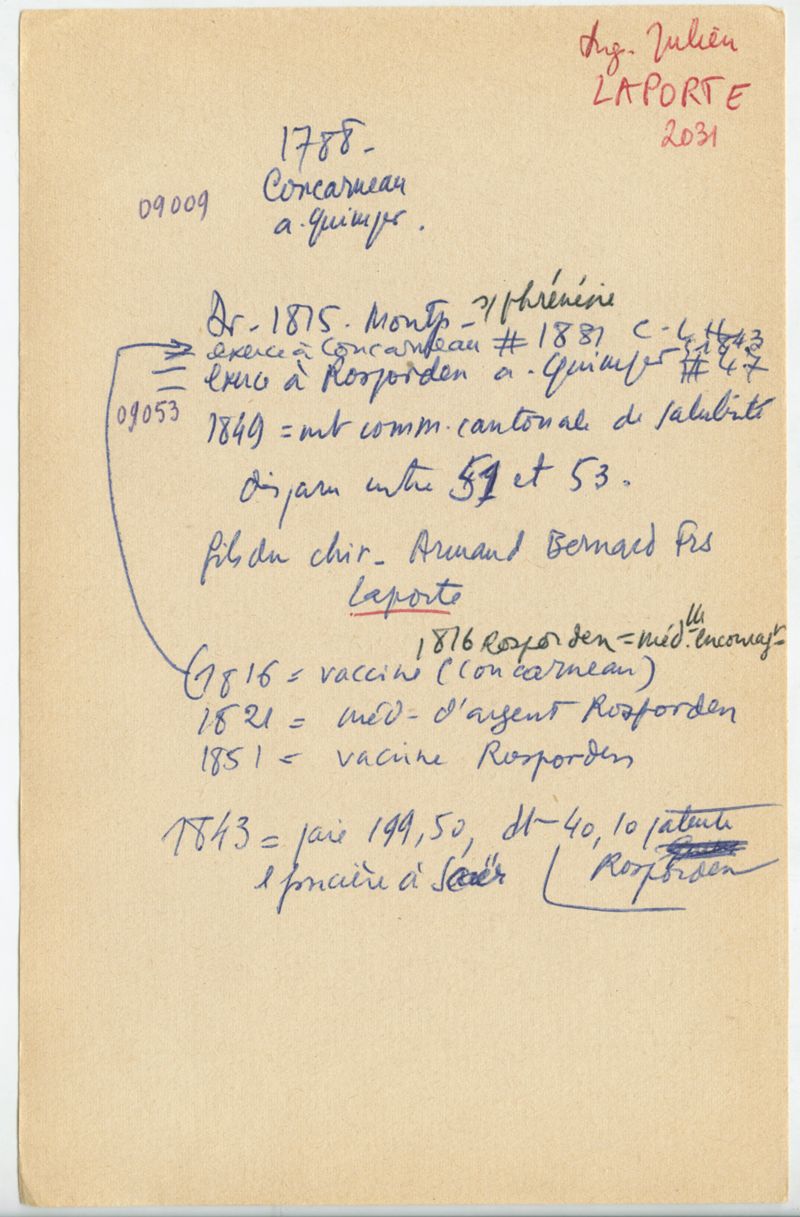 Aug. Julien
LAPORTE
2031
1788 -
Concarneau
a. Quimper.
09009
Dr - 1815 - Montp - s/ phrénésie
exerce à Concarneau # 1831 C - L H
exerce à Rosporden a. Quimper 1843 # 47
09053
1849 = mb comm. cantonale de salubrité
disparu entre 51 et 53.
fils du chir - Armand Bernard Frs
Laporte
1816 Rosporden = méd. encouragt
(1816 = vaccine (Concarneau)
1821 = méd - d'argent Rosporden
1851 = vaccine Rosporden
1843 = paie 199,50, dt - 40,10 patente
Rosporden
foncière à Scaër